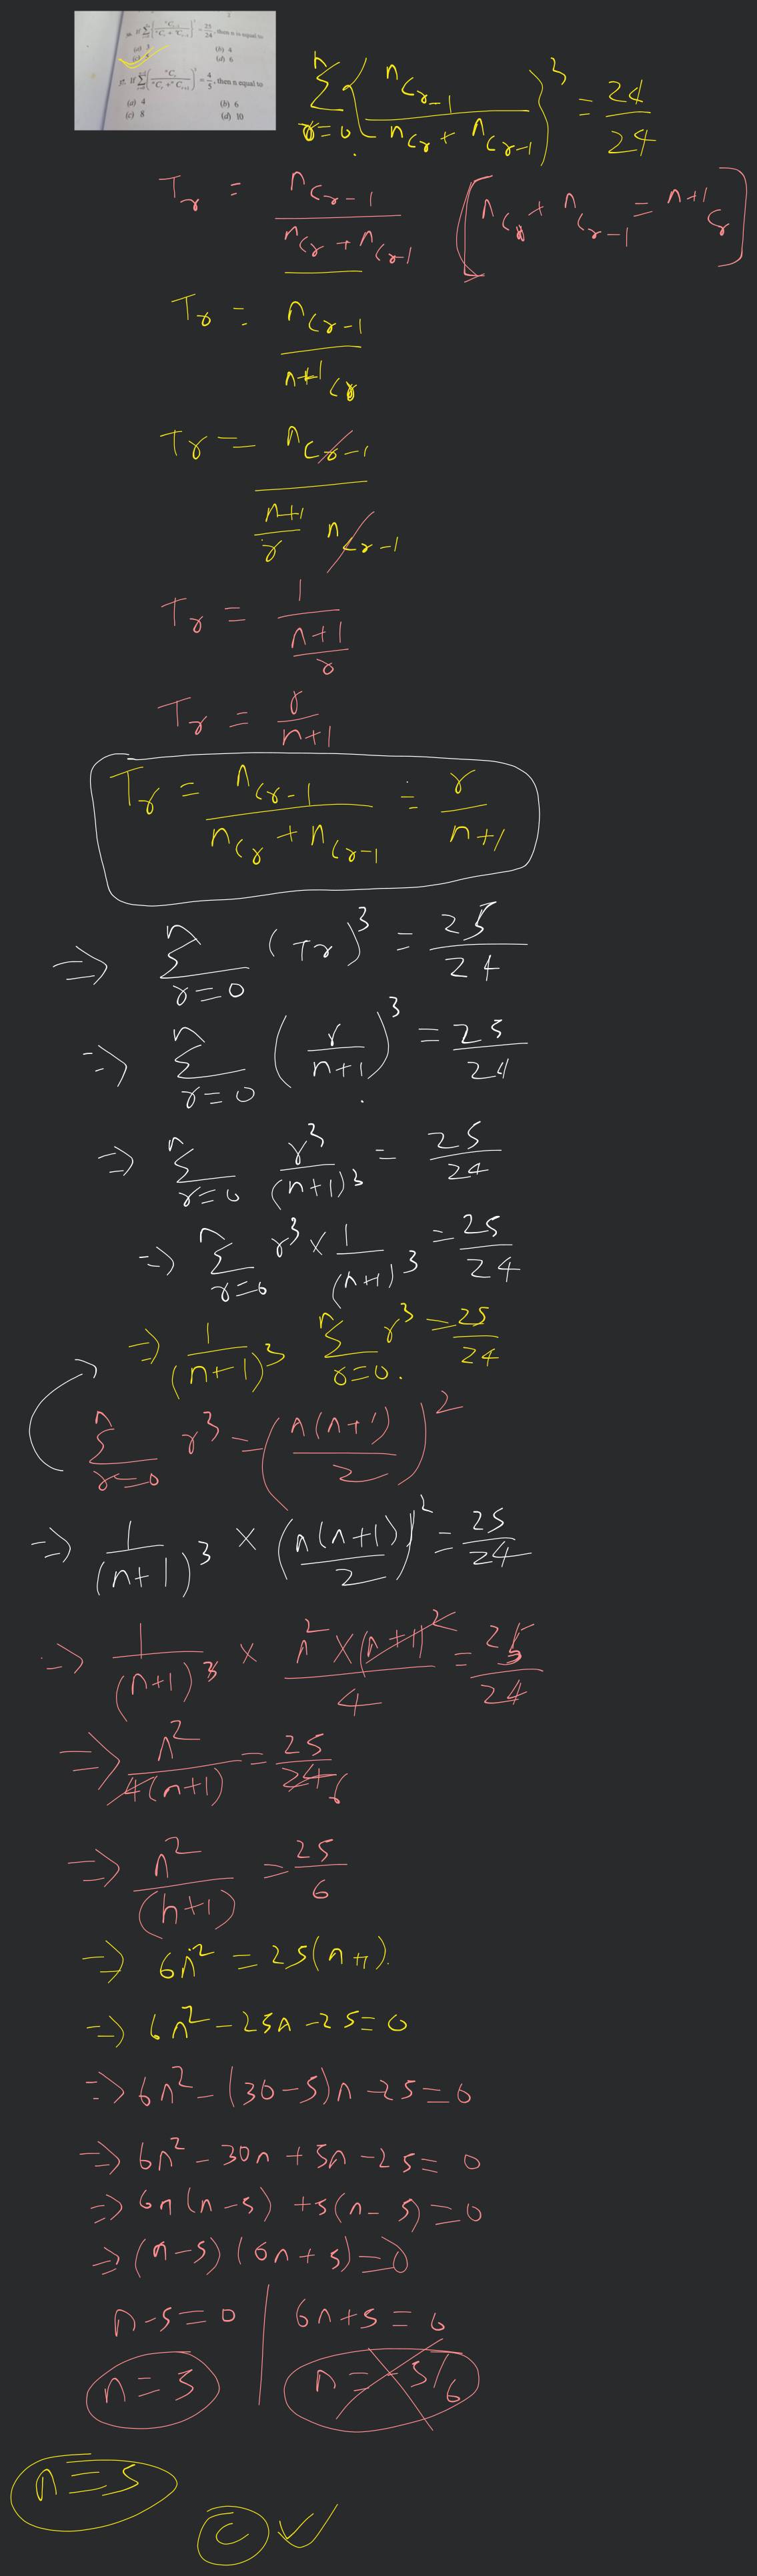 36. If Σ { ⁿCᵣ₋₁ / (ⁿCᵣ + ⁿCᵣ₋₁) }³ = 25/24, then n is equal to
(a) 3 (b) 4
(c) 5 (d) 6
37. If Σ ( ⁿCᵣ / (ⁿCᵣ + ⁿCᵣ₊₁) )³ = 4/5, then n equal to
(a) 4 (b) 6
(c) 8 (d) 10
n Σ r=0 { nCr-1 / (nCr + nCr-1) }³ = 24/24
Tr = nCr-1 / (nCr + nCr-1) [nCr + nCr-1 = n+1Cr]
Tr = nCr-1 / n+1Cr
Tr = nCr-1 / ((n+1)/r nCr-1)
Tr = 1 / ((n+1)/r)
Tr = r/(n+1)
Tr = nCr-1 / (nCr + nCr-1) = r/(n+1)
⇒ n Σ r=0 (Tr)³ = 25/24
⇒ n Σ r=0 (r/(n+1))³ = 25/24
⇒ n Σ r=0 r³/(n+1)³ = 25/24
⇒ n Σ r=0 r³ × 1/(n+1)³ = 25/24
⇒ 1/(n+1)³ n Σ r=0 r³ = 25/24
n Σ r=0 r³ = (n(n+1)/2)²
⇒ 1/(n+1)³ × (n(n+1)/2)² = 25/24
⇒ 1/(n+1)³ × n²×(n+1)²/4 = 25/24
⇒ n²/4(n+1) = 25/24 6
⇒ n²/(n+1) = 25/6
⇒ 6n² = 25(n+1)
⇒ 6n² - 25n - 25 = 0
⇒ 6n² - (30-5)n - 25 = 0
⇒ 6n² - 30n + 5n - 25 = 0
⇒ 6n(n-5) + 5(n-5) = 0
⇒ (n-5)(6n+5) = 0
n-5=0 | 6n+5=0
n=5 n=-5/6
n=5
C ✓